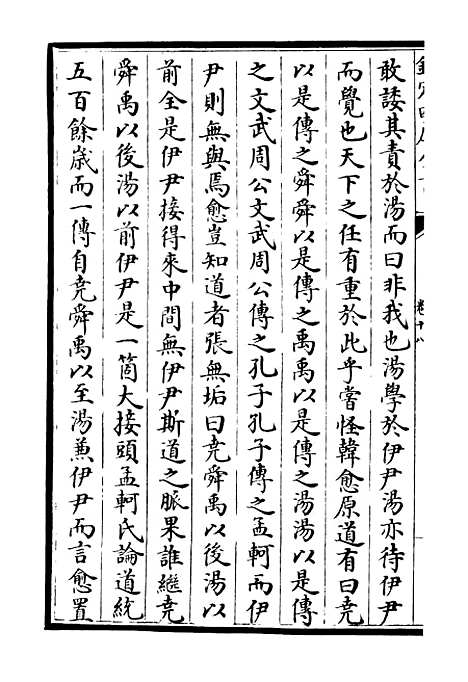 敢諉其責於湯而曰非我也湯學於伊尹湯亦待伊尹
而覺也天下之任有重於此乎嘗怪韓愈原道有曰堯
以是傳之舜舜以是傳之禹禹以是傳之湯湯以是傳
之文武周公文武周公傳之孔子孔子傳之孟軻而伊
尹則無與焉愈豈知道者張無垢曰堯舜禹以後湯以
前全是伊尹接得來中間無伊尹斯道之脈果誰繼堯
舜禹以後湯以前伊尹是一箇大接頭孟軻氏論道統
五百餘歲而一傳自堯舜禹以至湯兼伊尹而言愈置